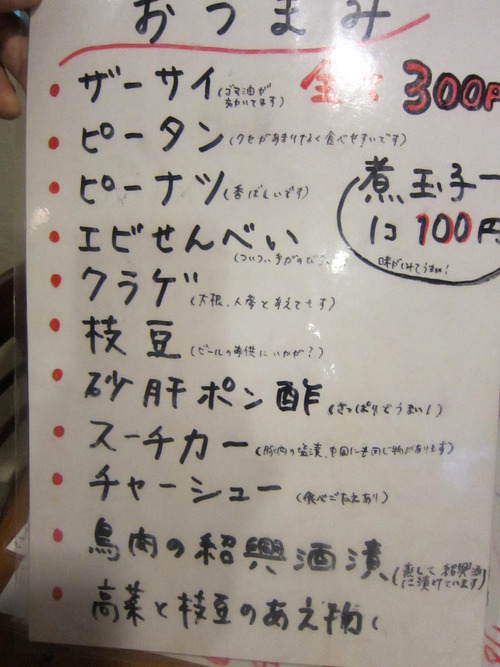 おつまみ
ザーサイ(ゴマ油が効いてます) 全て300円
ピータン(クセがあまりなく食べやすいです)
ピーナツ(香ばしいです)
煮玉子
1コ100円
味がしみてうまい!
エビせんべい
(ついつい手がのび
クラゲ(大根、人参と和えてます)
枝豆(ビールのお供にいかが?)
砂肝ポン酢(さっぱりでうまい!)
スーチカー(豚肉の塩漬、中国にも同じ物が有ります)
チャーシュー(食べごたえあり)
鳥肉の紹興酒漬(蒸して紹興酒に漬けています)
高菜と枝豆のあえ物(